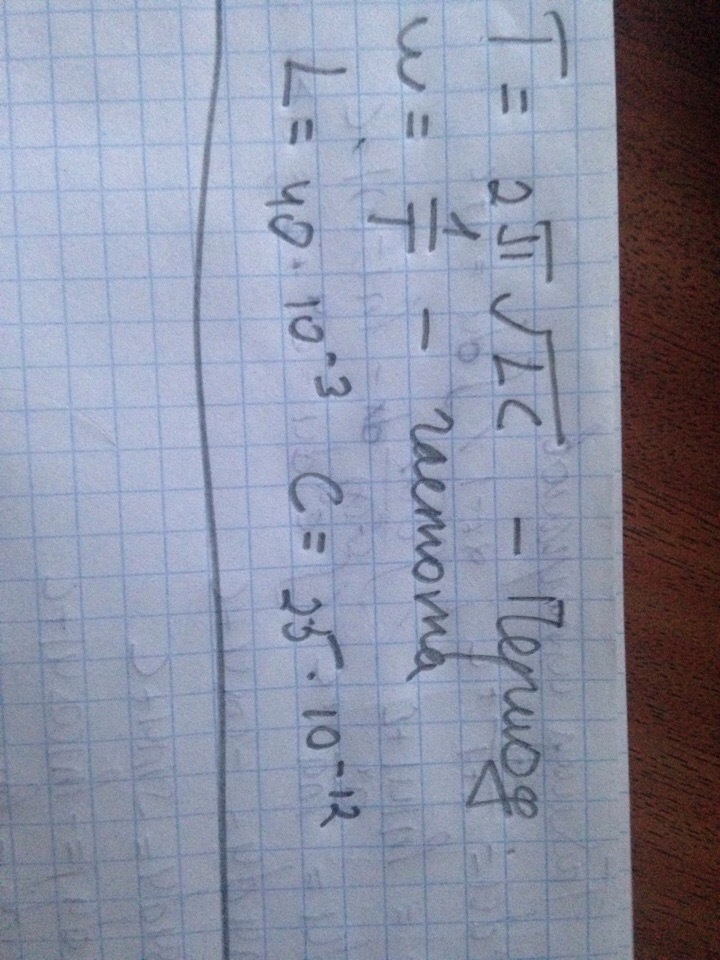 T = 2π√LC - Период
ω = 1/T - частота
L = 40·10^-3 C = 25·10^-12